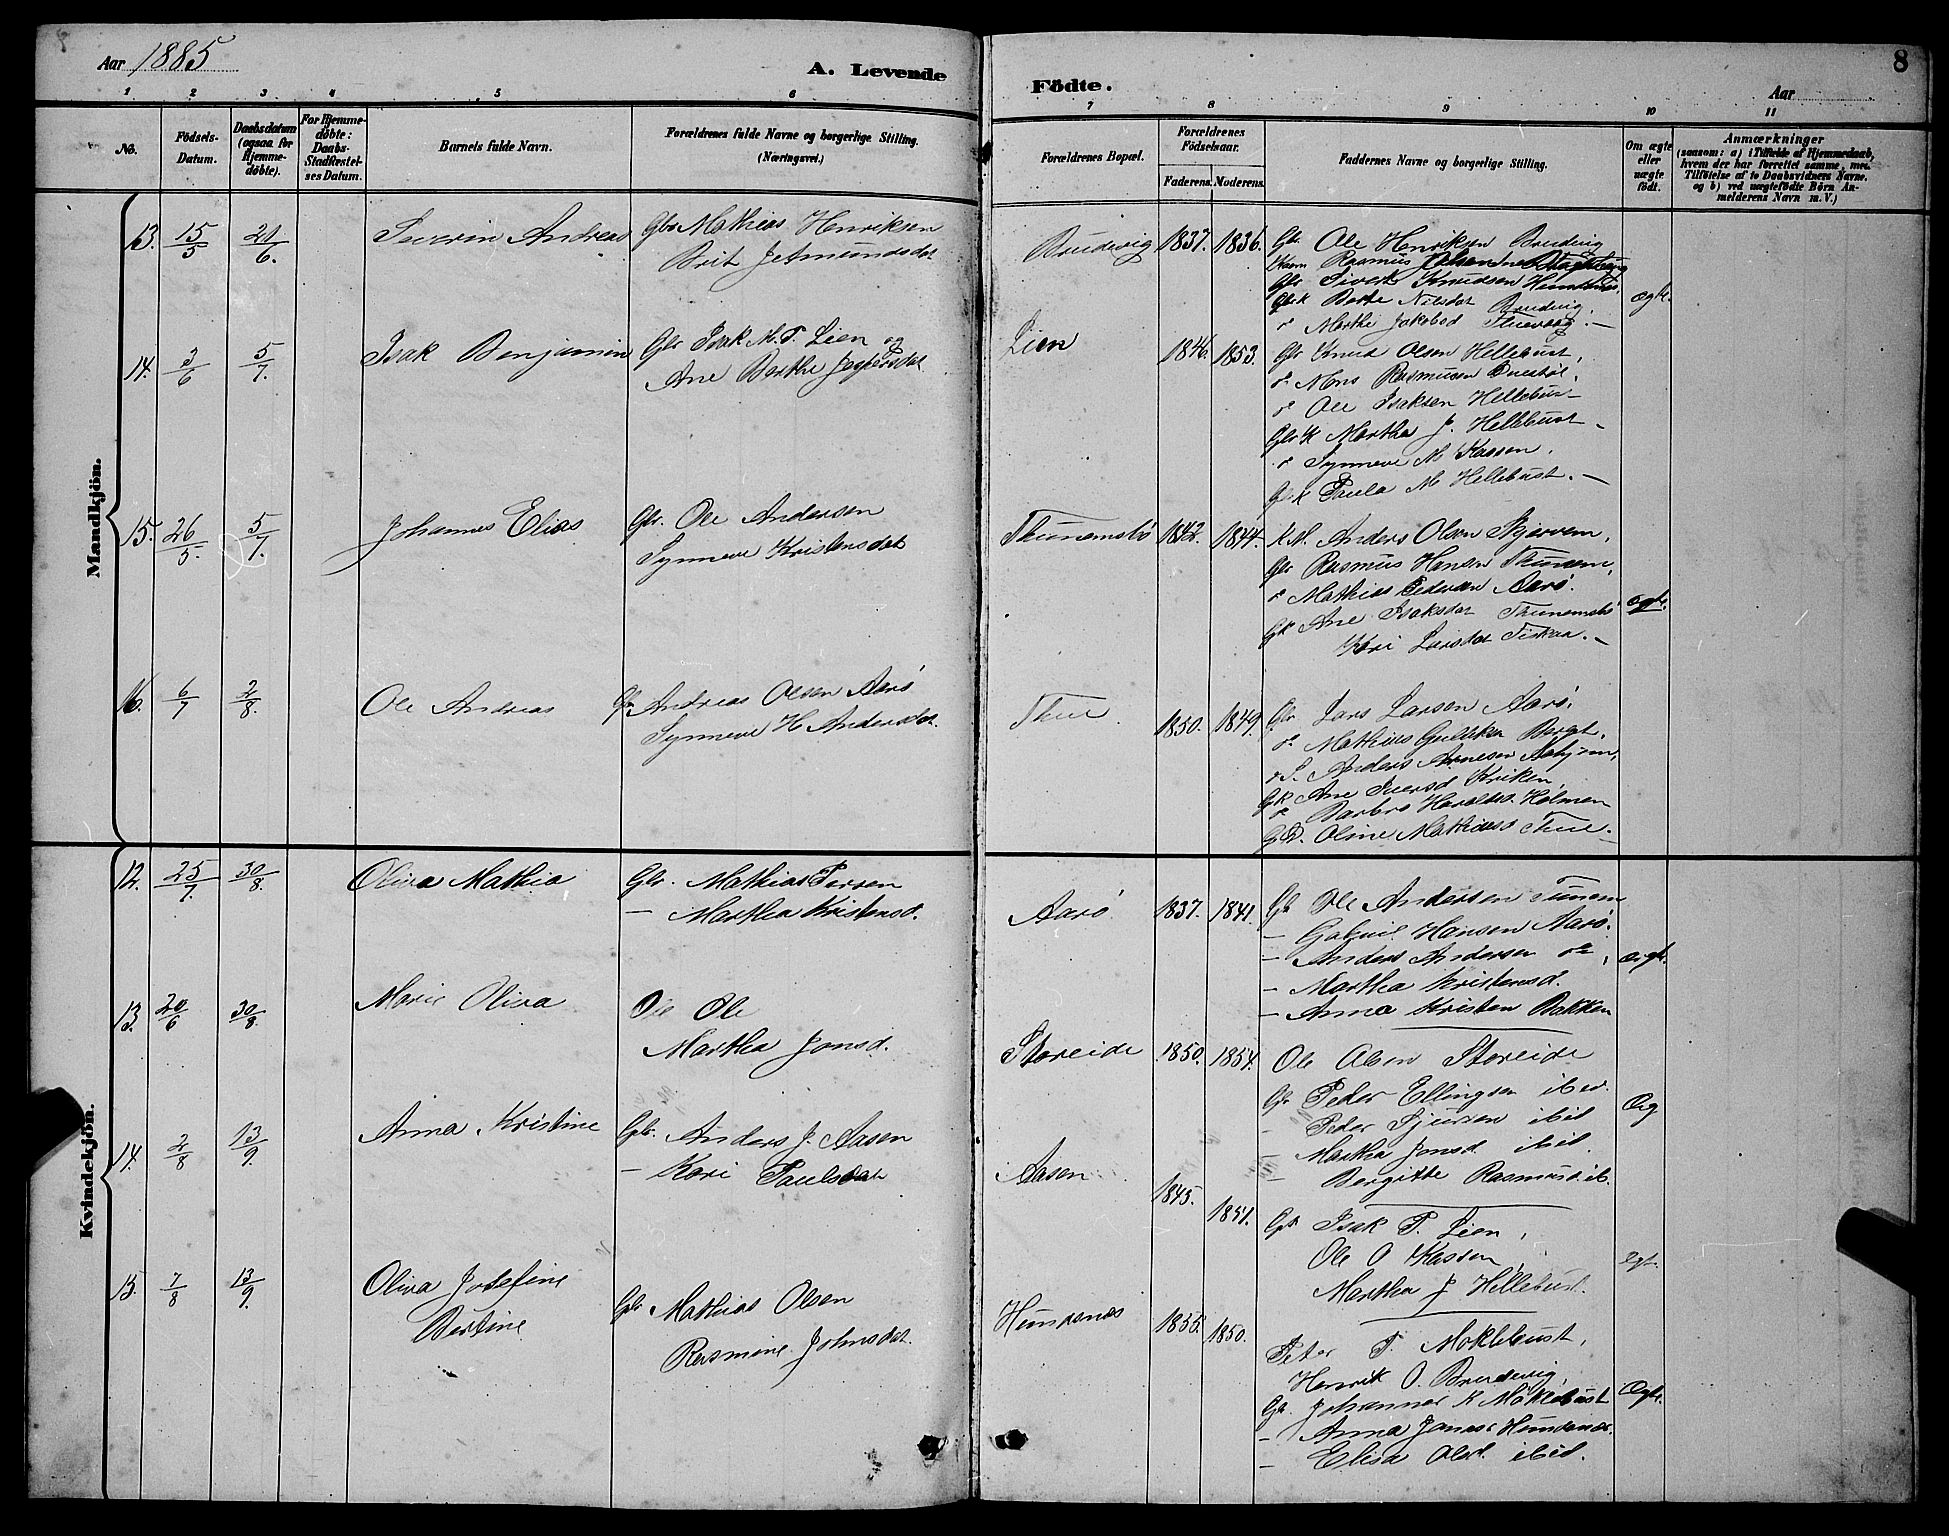 Aar 1885
A. Levende
Födte.
Aar
8
1 2 3 4 5 6 7 8 9 10 11
No.
Födsels-
Datum.
Daabsdatum
(ogsaa for
Hjemme-
döbte).
For Hjemme-
döbte:
Daabs-
Stadfæstel-
ses Datum.
Barnets fulde Navn.
Forældrenes fulde Navne og borgerlige Stilling.
(Næringsvei.)
Forældrenes Bopæl.
Forældrenes
Födselsaar.
Faderens. Moderens.
Faddernes Navne og borgerlige Stilling.
Om ægte
eller
uægte
födt.
Anmærkninger
(saasom: a) i Tilfælde af Hjemmedaab,
hvem der har forrettet samme, med
Tilföielse af to Daabsvidners Navne.
og b) ved uægtefödte Börn An-
melderens Navn m. V.)
Mandkjön.
13. 15/5 21/6. Severin Andreas
Gbr Mathias Henriksen
Brit Jetmundsdat
Brudevig 1837. 1836.
Gbr. Ole Henriksen Brudevig
Rasmus
Gbr Sivert Knudsen
Gbrk Berte Nilsdat Brudevig.
Marthe Jakobsd
Ægte.
14. 3/6 5/7. Isak Benjamin
Gbr Isak M. T. Lien og
Ane Berthe Jespersdat
Lien 1846. 1853.
Gbr Knud Olsen Hellebust,
do Mons Rasmusen
do Ole Isaksen Hellebust
Gbr K Martha J. Hellebust
do Synneve M Kassen.
Gbr K Paula M Hellebust.
15. 26/5. 5/7. Johannes Elias
Gbr. Ole Andersen
Synneve Kristensdat
Thunemsbö 1842. 1844.
K.M. Anders Olsen Skjervem,
Gbr Rasmus Hansen Thunem,
do Mathias Pedersen Aarö.
Gk Ane Isaksdat Thunemsbö
Kari Larsdat Fiskaa.
Ægte.
16. 6/7 2/8. Ole Andreas
Gbr Andreas Olsen Aarö
Synneve H Andersdat.
Thue. 1850. 1849.
Gbr Lars Larsen Aarö.
do Mathias
Anders Arnesen
Gk Ane Iversd Kriken
do Barbro Haraldsd. Holmen
Oline Mathiasd Thue.
Kvindekjön.
12. 25/7. 30/8. Oliva Mathia
Gbr. Mathias Persen
– Martha Kristensd.
Aarö 1837. 1841.
Gb Ole Andersen Tunem
– Gabriel Hansen Aarö.
– Anders Andersen do,
– Martha Kristensd.
– Anna Kristen Bakken
Ægt.
13. 20/6 30/8. Marie Oliva
Ole Ole
Martha Jonsd.
Storeide 1850. 1854.
Ole Olsen Storeide
Gb Peder Ellingsen ibid.
– Peder Sjursen ibid
– Martha Jonsd ibid.
– Bergitte Rasmusd. ib.
Æg
14. 2/8 13/9. Anna Kristine
Gbr. Anders J. Aasen
– Kari Paulsdat
Aasen 1845. 1851.
Gb Isak T. Lien,
Ole O Kassen,
Martha J Hellebust.
Ægt.
15. 7/8 13/9. Oliva Josefine
Bertine
Gbr Mathias Olsen
Rasmine Johnsdat.
Hundsnes 1855. 1850.
Peter T. Moklebust,
Henrik O. Brudevig,
Gb. Johannes K Moklebust
– Anna Jonasd Hundsnes.
– Elisa Olsd. ibid.
Ægte.